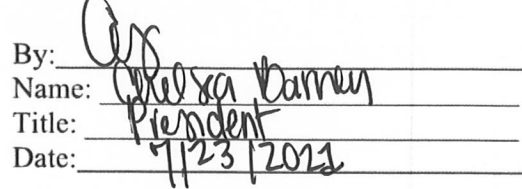 By:
Name: Chelsea Barney
Title: President
Date: 7/23/2021